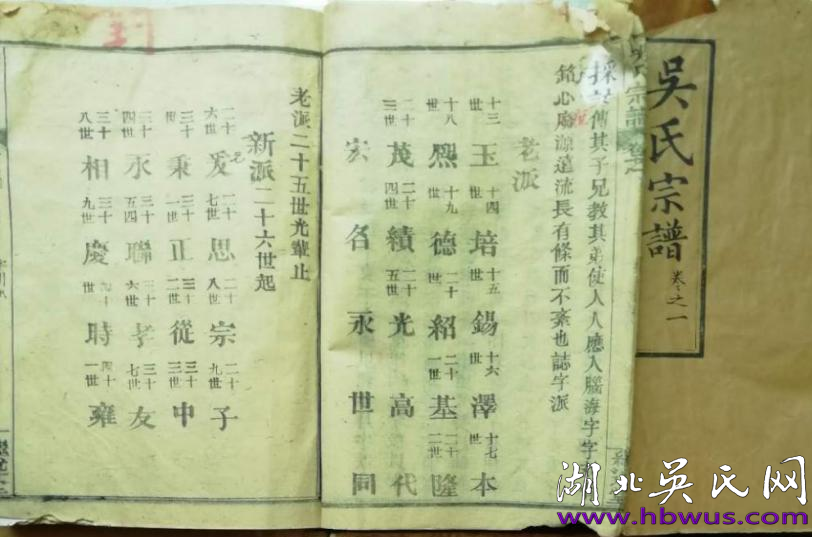 吳氏宗譜 卷之一
傳其子兄教其弟使人人應入腦海字字
銘心庶源遠流長有條而不紊也誌字派
老派
十三世 玉 十四世 培 十五世 錫 十六世 澤 十七世 本
十八世 熈 十九世 德 二十世 紹 二十一世 基 二十二世 隆
二十三世 茂 二十四世 績 二十五世 光 高 代
宏 名 永 世 同
老派二十五世光輩止
新派二十六世起
二十六世 爰 二十七世 思 二十八世 宗 二十九世 子
三十世 秉 三十一世 正 三十二世 從 三十三世 中
三十四世 永 三十五世 聯 三十六世 孝 三十七世 友
三十八世 相 三十九世 慶 四十世 時 四十一世 雍
湖北吳氏网
www.hbwus.com